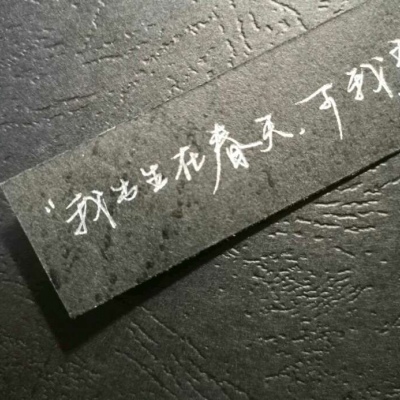 “我出生在春天,可我